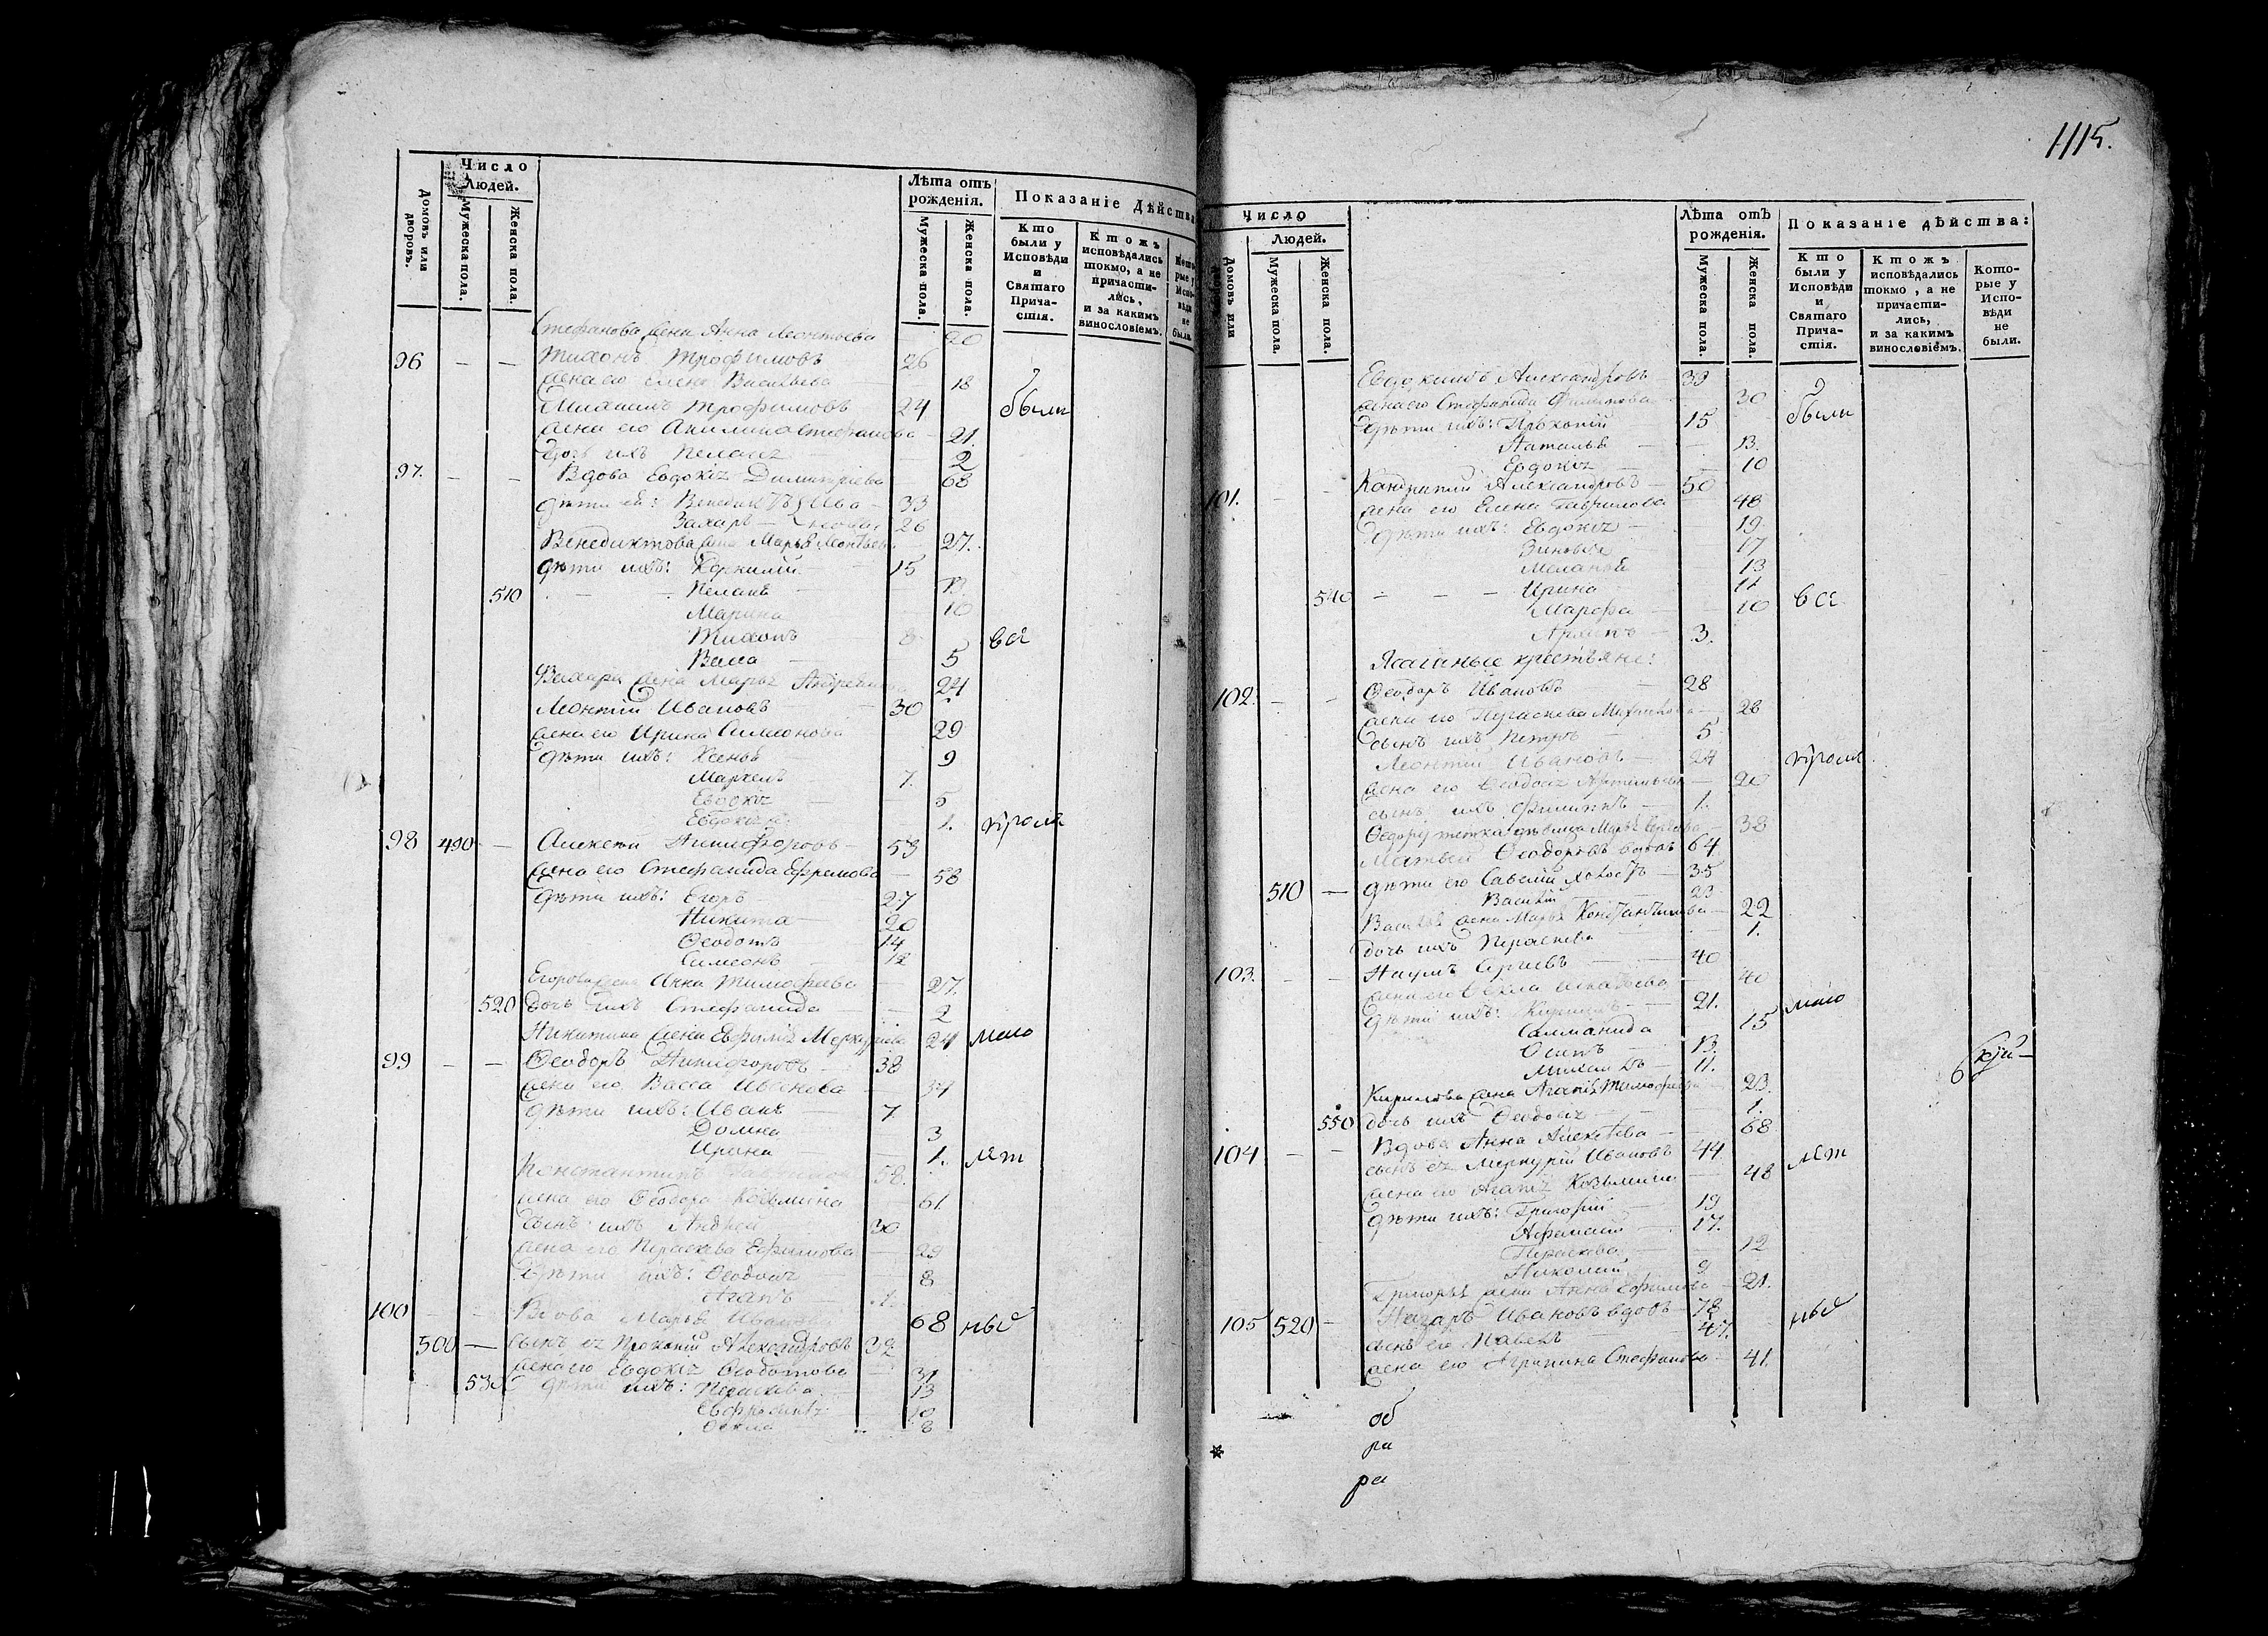 Число
Людей.
Домовъ или дворовъ.
Мужеска пола.
Женска пола.
Лѣта отъ рожденія.
Мужеска пола.
Женска пола.
Показаніе Дѣйства
Кто были у Исповѣди и Святаго Прича-стія.
Ктожъ исповѣдались токмо, а не причасти-лись, и за какимъ винословіемъ.
Кото-рые у Испо-вѣди не были.
Стефанова жена Анна Леонтьева 20
96 — — Тихонъ Трофимовъ 26
жена его Елена Васильева 18
Михаилъ Трофимовъ 24 были
жена его Акилина Стефанова 21.
дочь ихъ Пелагѣя 2
97. — — Вдова Евдокія Димитріева 68
дѣти ей: Венедиктъ Ива- 33
Захаръ — новы 26
Венедиктова жена Марья Леонтьева 27.
дѣти ихъ: 15
510 — — Пелагѣя 13.
Марина 10
Тихонъ 8 всѣ
Васса 5
Захара жена Марья Андреева 24
Леонтій Ивановъ 30
жена его Ирина Симеонова 29
дѣти ихъ: Ксенья 9
Маркелъ 7.
Евдокія 5
Евдокія 1. кромѣ
98 490 — Алексѣй Никифоровъ 53
жена его Стефанида Ефремова 58
дѣти ихъ: Егоръ 27
Никита 20
Ѳеодотъ 14
Симеонъ 12
Егорова жена Анна Тимофеева 27.
520 дочь ихъ Стефанида 2
Никитина жена Евфимія Меркурьева 24 мало
99 — — Ѳеодоръ Никифоровъ 38
жена его Васса Иванова 34
дѣти ихъ: Иванъ 7
Домна 3
Ирина 1. лѣт
Константинъ 58.
жена его Ѳеодора Козьмина 61.
сынъ ихъ Андрей 30
жена его Параскева Ефимова 29
Дѣти ихъ: Ѳеодосія 8
Агапъ 1.
100 — — Вдова Марья Иванова 68 ныѣ
500 — сынъ ея Прокопій Александровъ 32
жена его Евдокія Ѳеодотова 31
530 дѣти ихъ: Параскева 13
Евфросинія 10
Ѳекла 8
1115.
Число
Людей.
Домовъ или
Мужеска пола.
Женска пола.
Лѣта отъ рожденія.
Мужеска пола.
Женска пола.
Показаніе дѣйства:
Кто были у Исповѣди и Святаго Прича-стія.
Ктожъ исповѣдались токмо, а не причасти-лись, и за какимъ винословіемъ.
Кото-рые у Испо-вѣди не были.
Евдокимъ Александровъ 39
жена его Стефанида Филипова 30 были
Дѣти ихъ: Прокопій 15
Наталья 13.
Евдокія 10
101. — — Кондратій Александровъ 50
жена его Елена Гаврилова 48
дѣти ихъ: Евдокія 19
Зиновья 17
Меланья 13
540 — — — Ирина 11
Марфа 10 всѣ
Архипъ 3.
Ясашные крестьяне:
102. — — Ѳеодоръ Ивановъ 28
жена его Параскева Михайлова 28
сынъ ихъ Петръ 5
Леонтій Ивановъ 24 кромѣ
жена его Ѳеодосія Артемьева 20
сынъ ихъ Филиппъ 1.
Ѳедору тетка дѣвица Марья Сергѣева 38
Матвѣй Ѳеодоровъ вдовъ 64
510 — дѣти его Савелій холостъ 35
Василій 23
Василья жена Марья Константинова 22
дочь ихъ Параскева 1.
103. — — Наумъ Сергѣевъ 40
жена его Ѳекла Игнатьева 40
дѣти ихъ: Кириллъ 21. мало
Саламанида 15
Осипъ 13.
Михаилъ 11.
Кирилова жена Агапія Тимофеева 23.
550 дочь ихъ Ѳеодосія 1.
104 — — Вдова Анна Алексѣева 68
сынъ ея Меркурій Ивановъ 44 лѣт
жена его Агапія Козьмина 48
дѣти ихъ: Григорій 19
Афанасій 17.
Параскева 12
Николай 9
Григорья жена Анна Ефимова 21.
105 520 — Назаръ Ивановъ вдовъ 78 ныѣ
сынъ его Павелъ 47.
жена его Агрипина Стефанова 41.
об
ра
ра
*